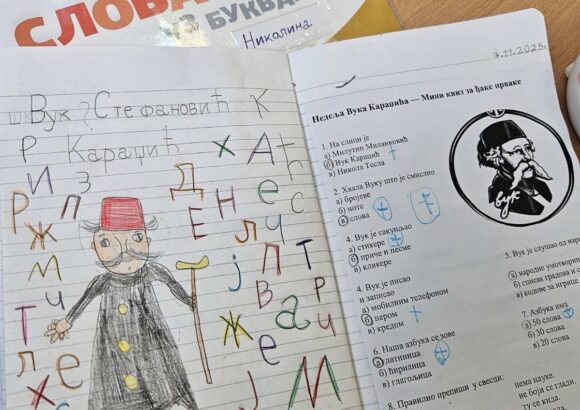 СЛОВА
ИЗ БУКВА
Николина
Вук Стефановић К
Р Караџић х А ћ
И З Д Н е с
Р П Е Л Ч
Ж
М ј П Т
Ч В а Р
Т Ж е И
л е Ј М
Х
7.11.2023.
Недеља Вука Караџића — Мини квиз за ђаке прваке
1. На слици је
а) Милутин Миланковић
б) Вук Караџић
в) Никола Тесла
2. Хвала Вуку што је смислио
а) бројеве
б) ноте
в) слова
4. Вук је сакупљао
а) стикере
б) приче и песме
в) кликере
4. Вук је писао
и записао
а) мобилним телефоном
б) пером
в) кредом
6. Наша азбука се зове
а) латиница
б) ћирилица
в) глагољица
вук
5. Вук је слушао од
а) народне
б) списак градова и
в) колове за
7. Азбука има
а) 50 слова
б) 30 слова
в) 20 слова
8. Правилно препиши у свесци:
нема науке.
не боји се
ту се кида.